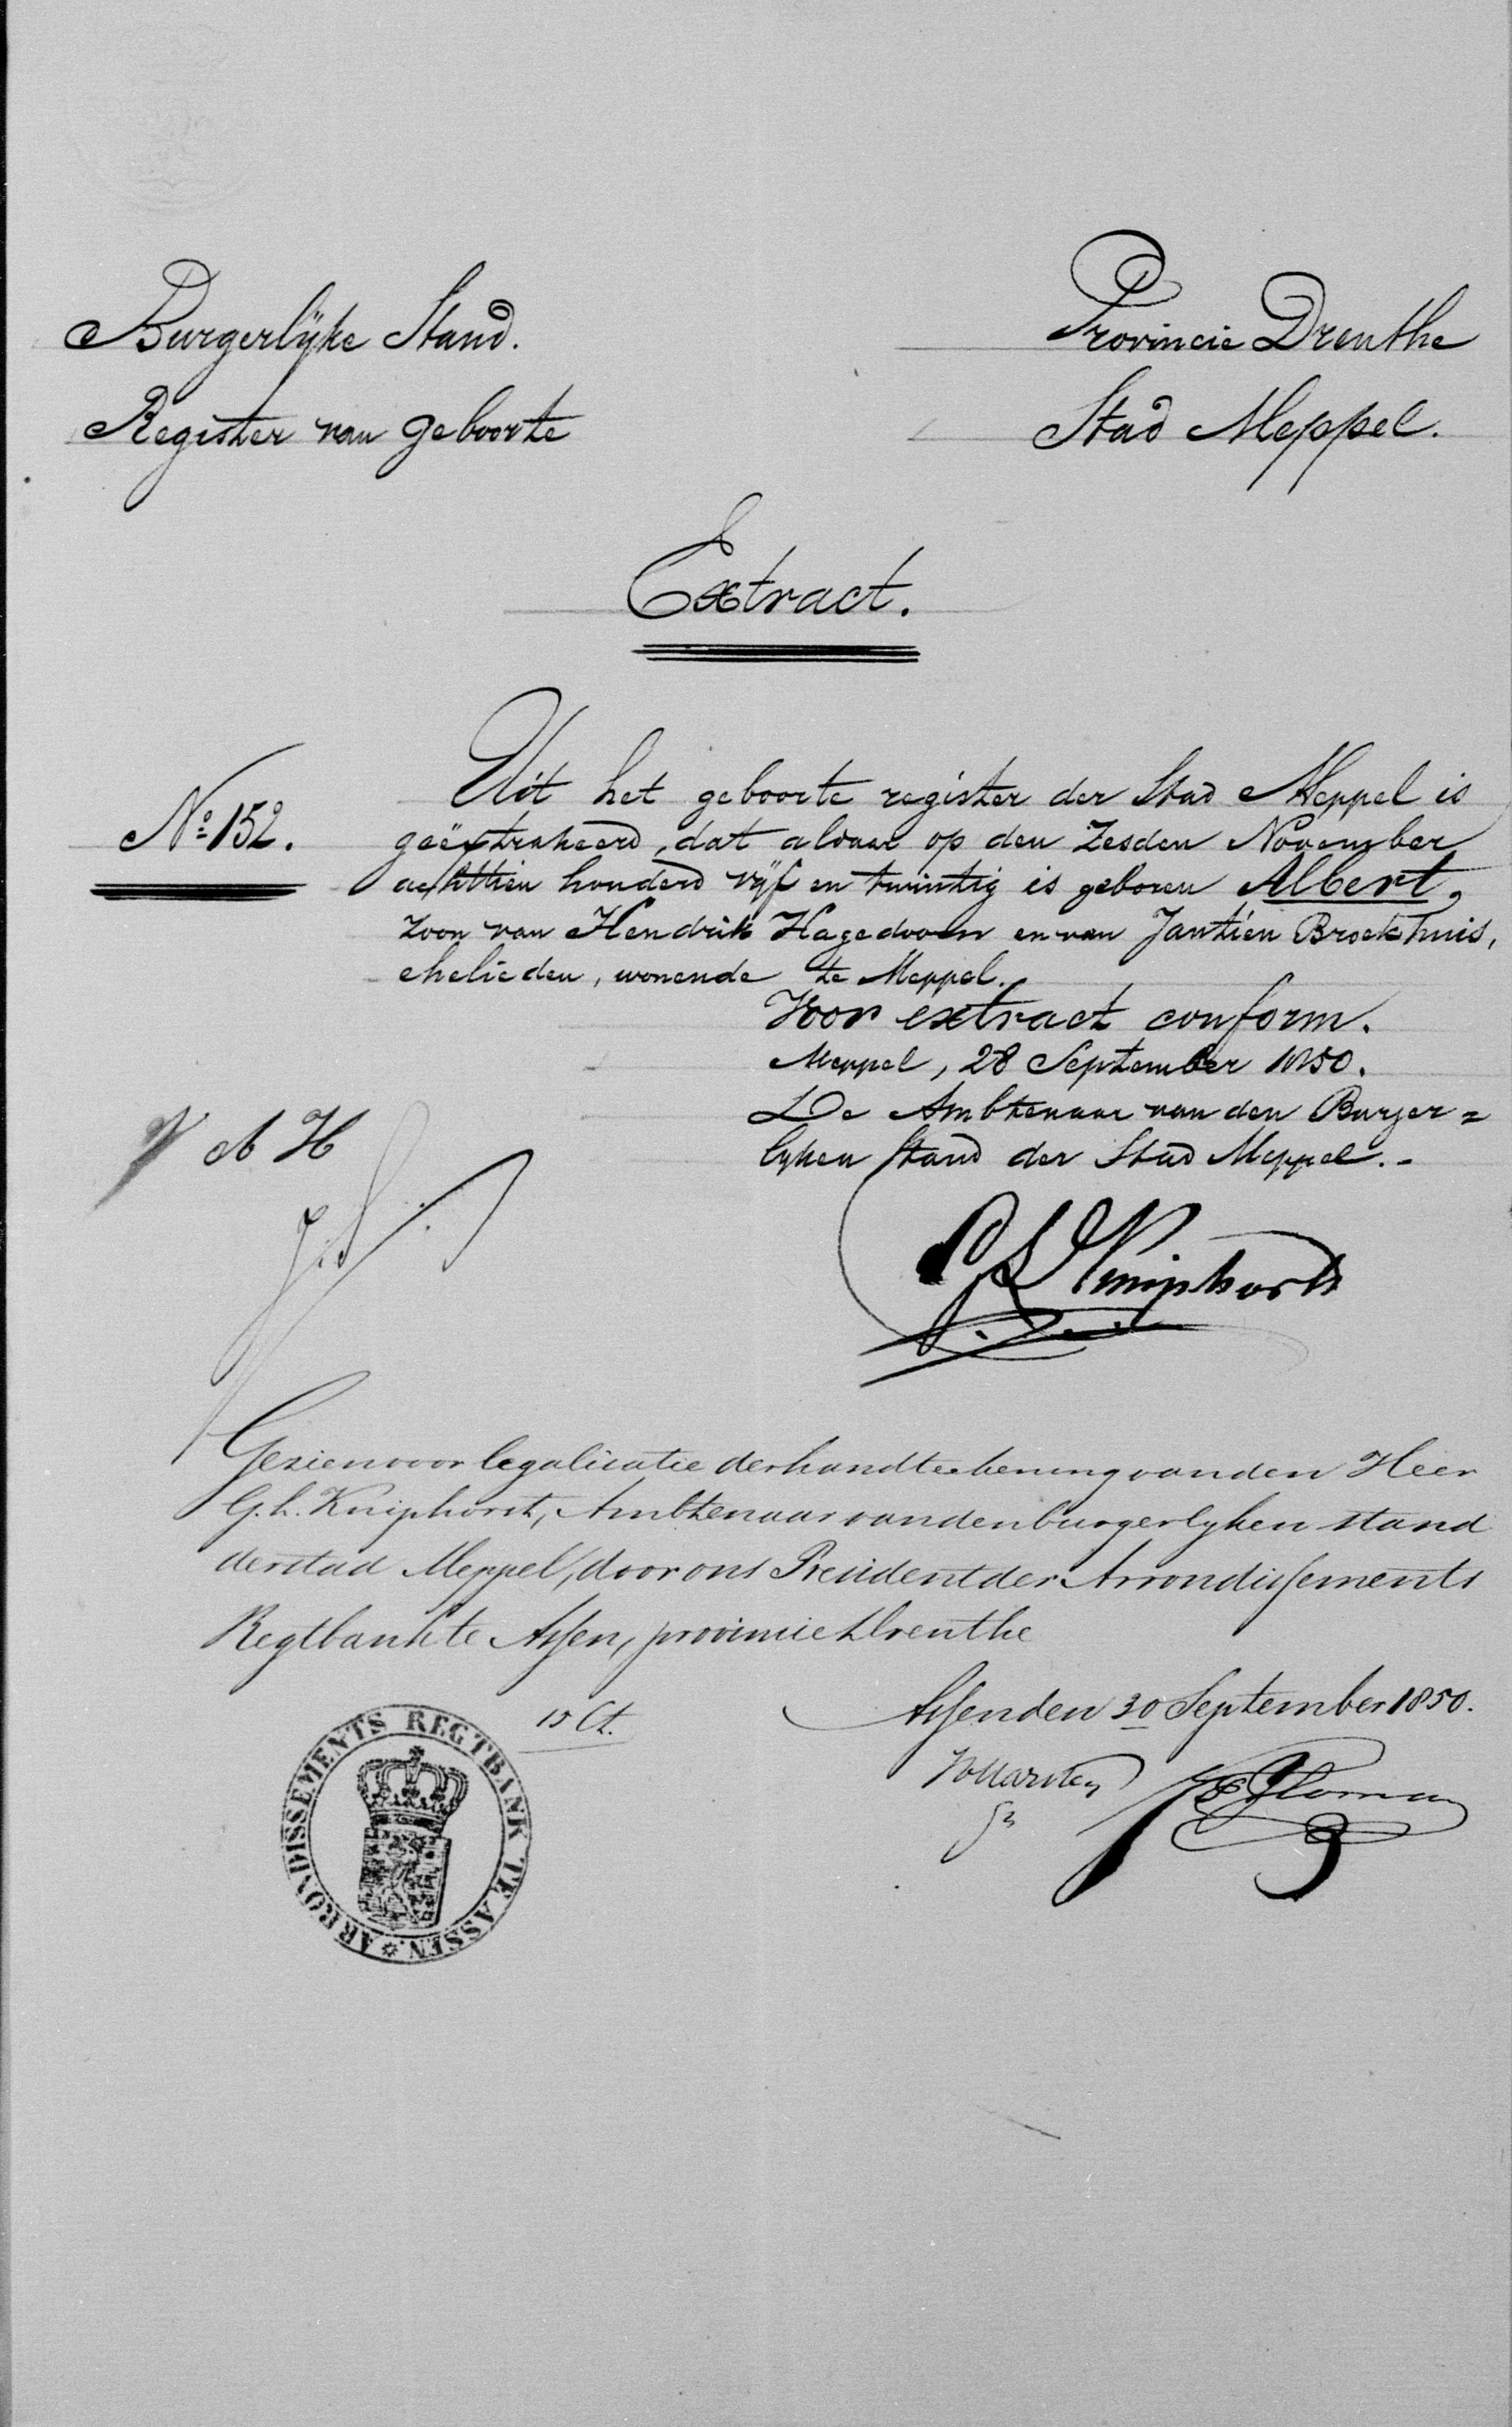 Burgerlijke Stand.
Register van geboorte
Provincie Drenthe
Stad Meppel.
Extract.
No 152.
Uit het geboorte register der Stad Meppel is
geëxtraheerd, dat aldaar op den Zesden November
achttien honderd vijf en twintig is geboren Albert,
zoon van Hendrik Hagedoorn en van Jantien Broekhuis,
ehelieden, wonende te Meppel.
Voor extract conform.
Meppel, 28 September 1850.
De Ambtenaar van den Burger=
lyken Stand der Stad Meppel.-
A H
G L Kniphorst
Gezien voor legalisatie der handteekening van den Heer
G. L. Kniphorst, Ambtenaar van den burgerlyken stand
der stad Meppel, door ons President der Arrondissements
Regtbank te Assen, provincie Drenthe
15 Ct.
Assen den 30 September 1850.
ARRONDISSEMENTS REGTBANK TE ASSEN.